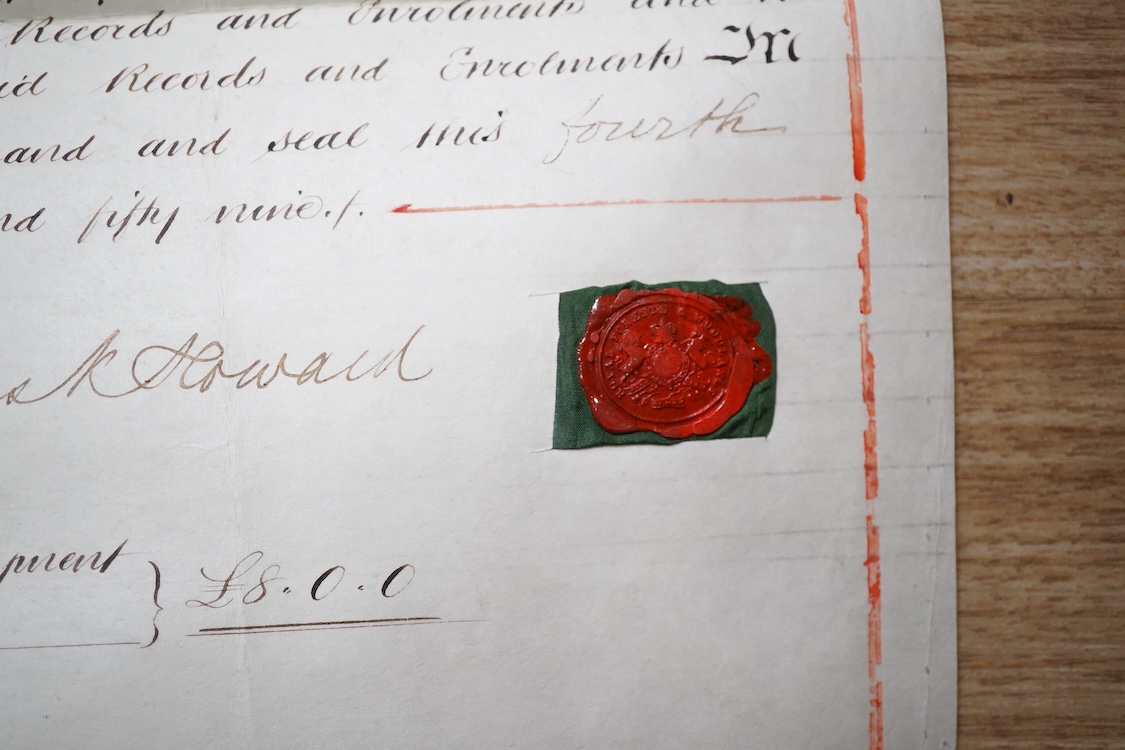 Records and Enrolments and
id Records and Enrolments M
and and seal this fourth
nd fifty nine./.
K Howard
pment } £8.0.0